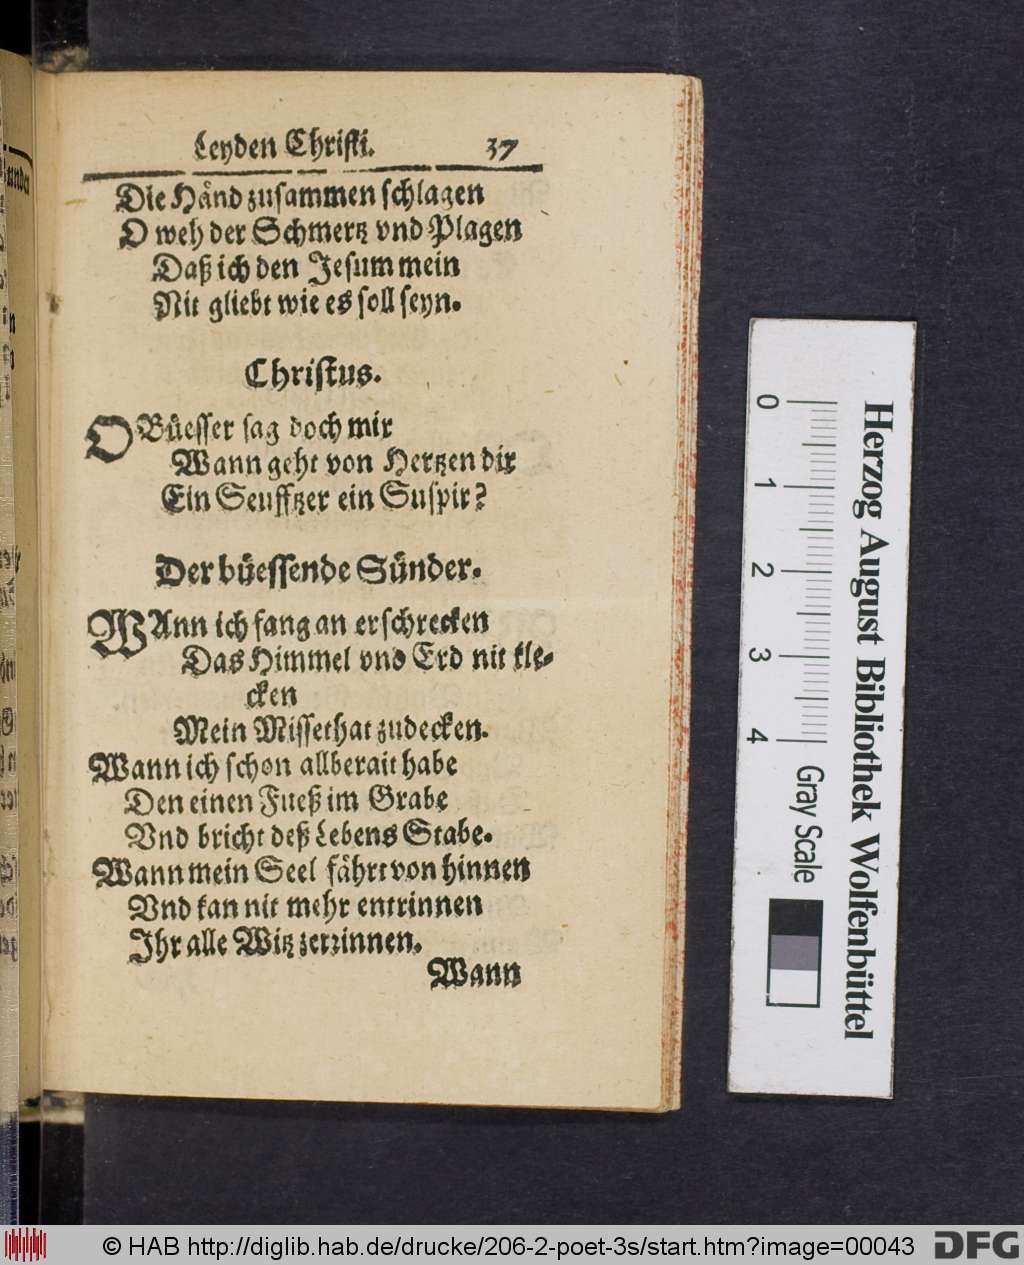 Leyden Christi. 37
Die Hånd zusammen schlagen
O weh der Schmertz vnd Plagen
Daß ich den Jesum mein
Nit gliebt wie es soll seyn.
Christus.
O Büesser sag doch mir
Wann geht von Hertzen dir
Ein Seufftzer ein Suspir?
Der büessende Sünder.
WAnn ich fang an erschrecken
Das Himmel vnd Erd nit kle-
cken
Mein Missethat zudecken.
Wann ich schon allberait habe
Den einen Fueß im Grabe
Vnd bricht deß Lebens Stabe.
Wann mein Seel fåhrt von hinnen
Vnd kan nit mehr entrinnen
Jhr alle Witz zerrinnen.
Wann
Herzog August Bibliothek Wolfenbüttel
0 1 2 3 4
Gray Scale
© HAB http://diglib.hab.de/drucke/206-2-poet-3s/start.htm?image=00043
DFG